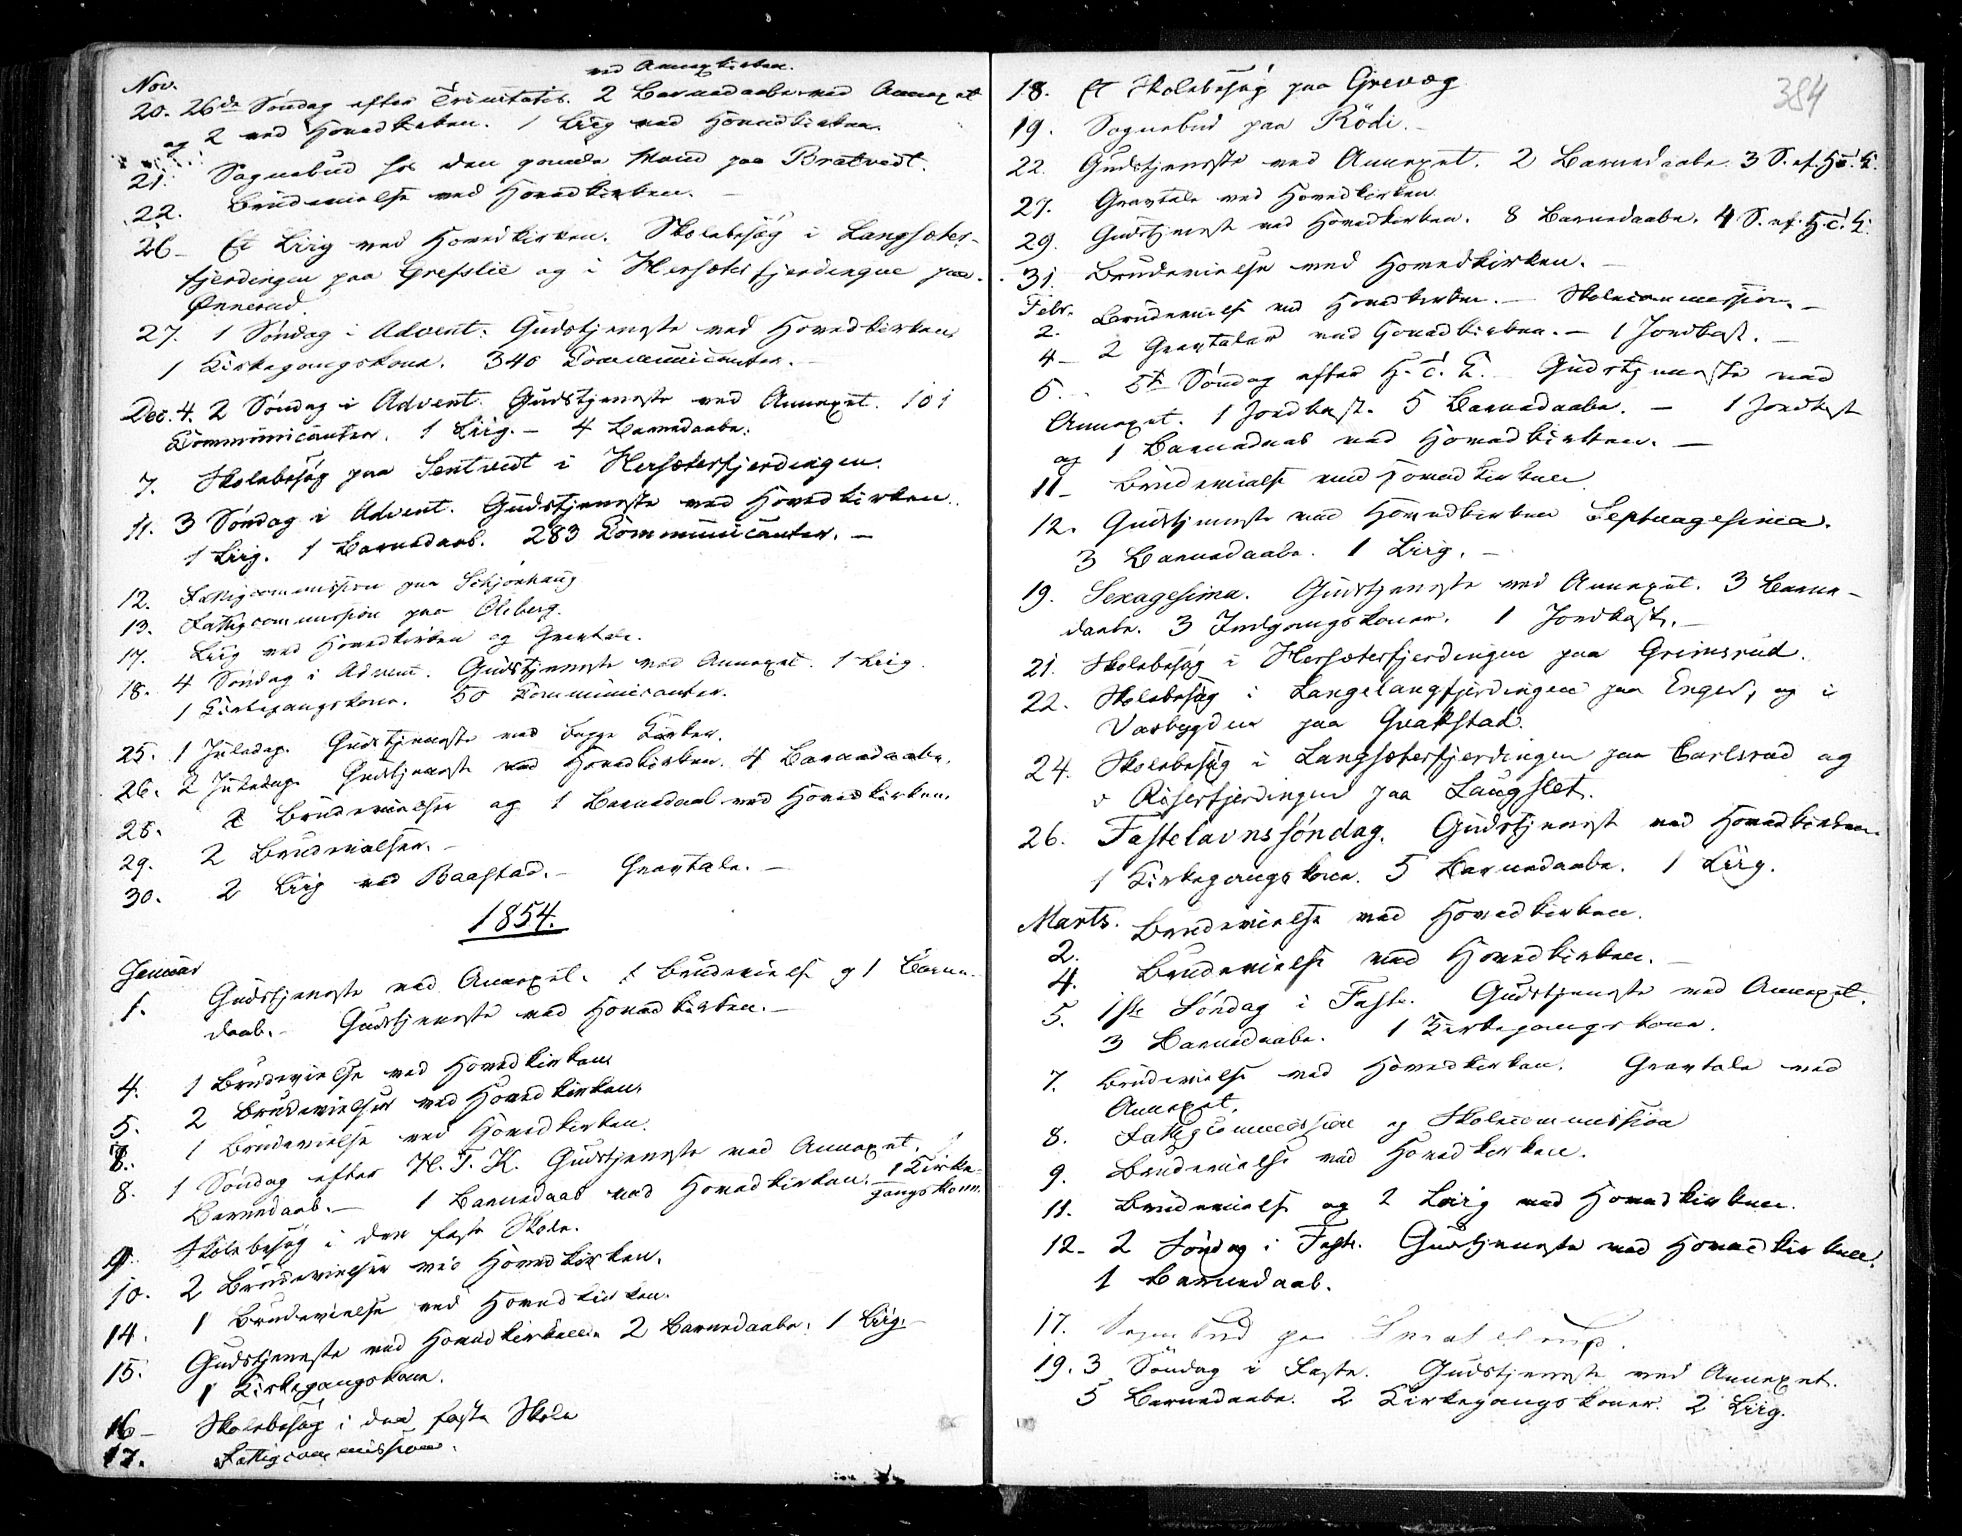 ved Annexkirken.
Nov.
20. 26de Søndag efter Trinitatis. 2 Barnedaabe ved Annexet
og 2 ved Hovedkirken. 1 Liig ved Hovedkirken.
21. Sognebud hos den gamle Mand paa Bratvedt.
22. Brudevielse ved Hovedkirken. –
26 – Et Liig ved Hovedkirken. Skolebesøg i Langsæter-
fjerdingen paa Grefslie og i Hersæterfjerdingen paa
Ønnerud.
27. 1 Søndag i Advent. Gudstjeneste ved Hovedkirken,
1 Kirkegangskone. 340 Communicanter. –
Dec. 4. 2 Søndag i Advent. Gudstjeneste ved Annexet. 101
Communicanter. 1 Liig. – 4 Barnedaabe.
7. Skolebesøg paa Sentvedt i Hersæterfjerdingen.
11. 3 Søndag i Advent. Gudstjeneste ved Hovedkirken.
1 Liig. 1 Barnedaab. 283 Communicanter. –
12. Fattigcommission paa Schjønhaug
13. Fattigcommission paa Olberg.
17. Liig ved Hovedkirken og Gravtale.
18. 4 Søndag i Advent. Gudstjeneste ved Annexet. 1 Liig.
1 Kirkegangskone. 50 Communicanter.
25. 1 Juledag. Gudstjeneste ved begge Kirker.
26. 2 Juledag. Gudstjeneste ved Hovedkirken. 4 Barnedaabe.
28. 2 Brudevielser og 1 Barnedaab ved Hovedkirken.
29. 2 Brudevielser. –
30. 2 Liig ved Baastad. – Gravtale. –
1854.
Januar
1. Gudstjeneste ved Annexet. 1 Brudevielse og 1 Barne-
daab. – Gudstjeneste ved Hovedkirken. –
4. 1 Brudevielse ved Hovedkirken
5. 2 Brudevielser ved Hovedkirken.
7. 1 Brudevielse ved Hovedkirken.
8. 1 Søndag efter H. T. K. Gudstjeneste ved Annexet. 1
Barnedaab. – 1 Barnedaab ved Hovedkirken. – 1 Kirke-
gangskone.
9. Skolebesøg i den faste Skole.
10. 2 Brudevielser ved Hovedkirken.
14. 1 Brudevielse ved Hovedkirken.
15. Gudstjeneste ved Hovedkirken. 2 Barnedaabe. 1 Liig. –
1 Kirkegangskone.
16 – Skolebesøg i den faste Skole
17. Fattigcommission.
384
18. Et Skolebesøg paa Grevog
19. Sognebud paa Rödi. –
22. Gudstjeneste ved Annexet. 2 Barnedaabe. 3 S. ef. H. 3. K.
27. Gravtale ved Hovedkirken
29. Gudstjeneste ved Hovedkirken. 8 Barnedaabe. 4 S. ef. H. 3. K.
31. Brudevielse ved Hovedkirken. –
Febr.
2. Brudevielse ved Hovedkirken. – Skolecommission. –
4 – 2 Gravtaler ved Hovedkirken. – 1 Jordkast. –
5. 5te Søndag efter H. 3. K. Gudstjeneste ved
Annexet. 1 Jordkast. 5 Barnedaabe. – 1 Jordkast
og 1 Barnedaab ved Hovedkirken. –
11 – Brudevielse ved Hovedkirken
12. Gudstjeneste ved Hovedkirken Septuagesima.
3 Barnedaabe. 1 Liig. –
19. Sexagesima. Gudstjeneste ved Annexet. 3 Barne-
daabe. 3 Indgangskoner. 1 Jordkast. –
21. Skolebesøg i Hersæterfjerdingen paa Grimsrud.
22. Skolebesøg i Langelangfjerdingen paa Enger, og i
Varbygden paa Qvakstad.
24. Skolebesøg i Langsæterfjerdingen paa Carlsrud og
i Risesfjerdingen paa Laugslet.
26. Fastelavnssöndag. Gudstjeneste ved Hovedkirken
1 Kirkegangskone. 5 Barnedaabe. 1 Liig.
Marts.
2. Brudevielse ved Hovedkirken.
4. Brudevielse ved Hovedkirken. –
5. 1ste Søndag i Faste. Gudstjeneste ved Annexet.
3 Barnedaabe. 1 Kirkegangskone.
7. Brudevielse ved Hovedkirken. Gravtale ved
Annexet.
8. Fattigcommission og Skolecommission
9. Brudevielse ved Hovedkirken.
11. Brudevielse og 2 Liig ved Hovedkirken.
12 – 2 Söndag i Faste. Gudstjeneste ved Hovedkirken.
1 Barnedaab.
17. Sognebud paa
19. 3 Söndag i Faste. Gudstjeneste ved Annexet.
5 Barnedaabe. 2 Kirkegangskoner. 2 Liig.